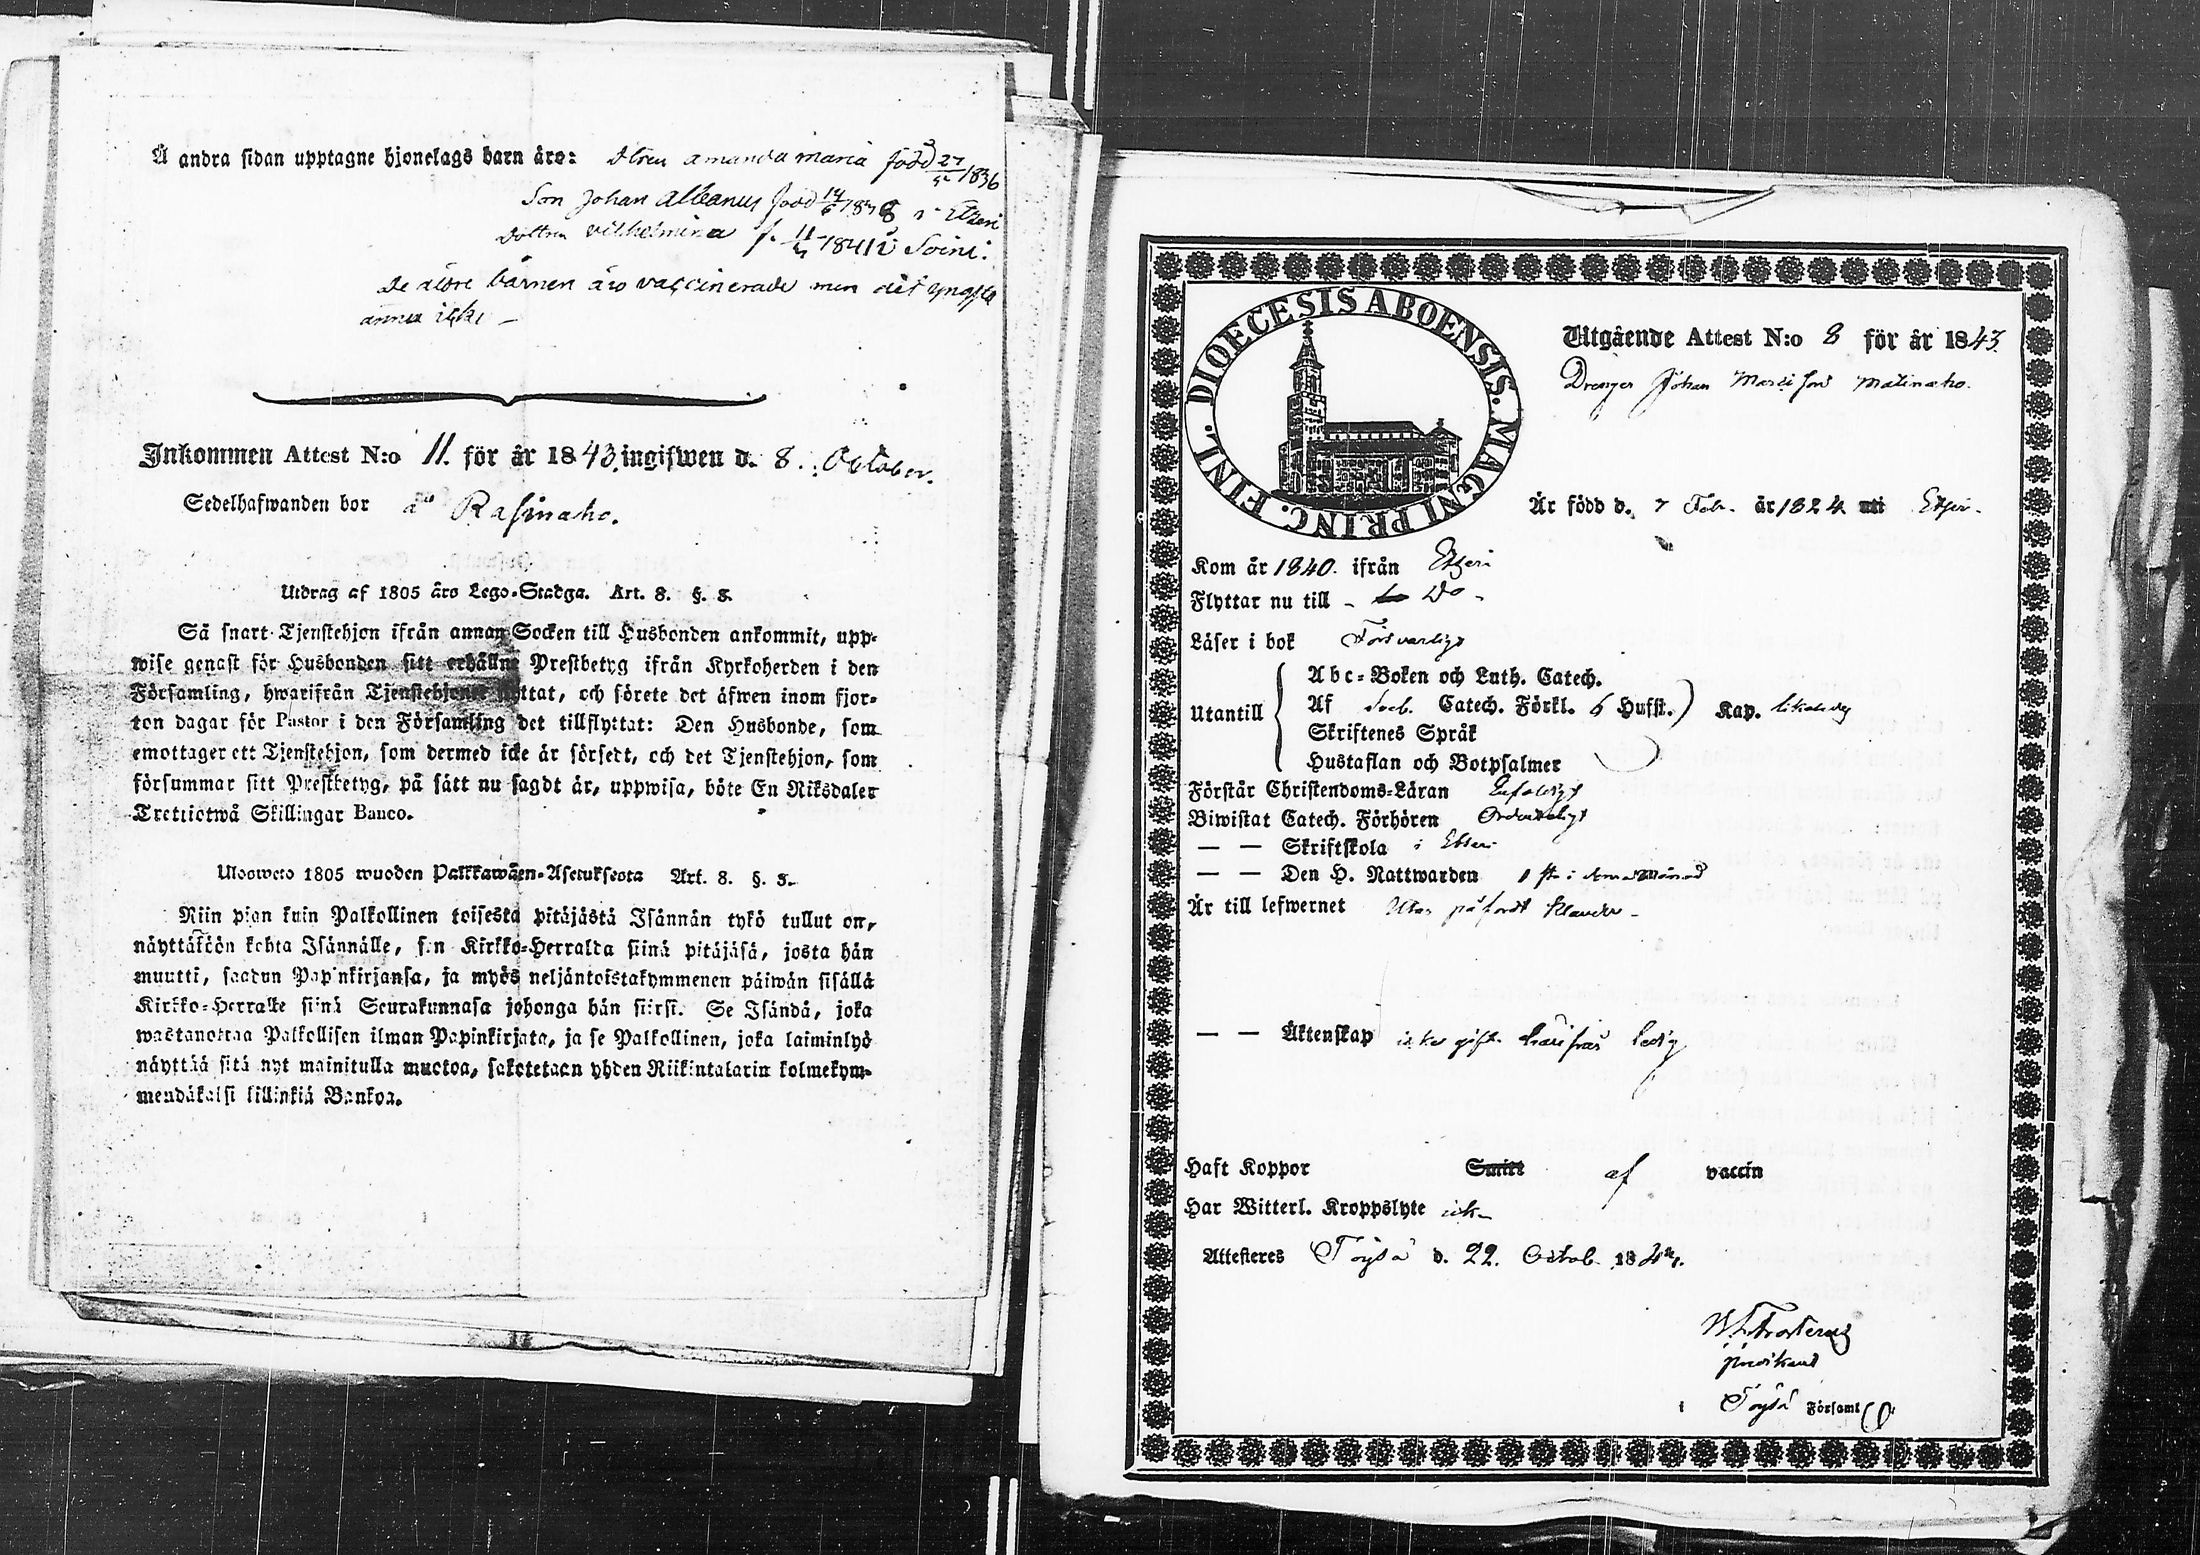 Å andra sidan upptagne hjonelags barn äro: dtren amanda maria född 27/ 1836
Son Johan Albanus född 14/6 1838 i Etseri
Dottren vilhelmina f. 11/ 1841 i Soini.
De äldre barnen äro vaccinerade men det yngsta
annu icke —
Inkommen Attest N:o 11. för år 1843 ingifwen d. 8. October.
Sedelhafwanden bor å Rasinaho.
Utdrag af 1805 års Lego-Stadga. Art. 8. §. 3.
Så snart Tjenstehjon ifrån annan Socken till Husbonden ankommit, upp-
wise genast för Husbonden sitt erhållne Prestbetyg ifrån Kyrkoherden i den
Församling, hwarifrån Tjenstehjonet flyttat, och förete det äfwen inom fjor-
ton dagar för Pastor i den Församling det tillflyttat: Den Husbonde, som
emottager ett Tjenstehjon, som dermed icke är försedt, och det Tjenstehjon, som
försummar sitt Prestbetyg, på sätt nu sagdt är, uppwisa, böte En Riksdaler
Trettiotwå Skillingar Banco.
Ulosweto 1805 wuoden Palkkawäen-Asetuksesta Art. 8. §. 3.
Niin pian kuin Palkollinen toisesta pitäjästä Isännän tykö tullut on,
näyttäköön kohta Isännälle, sen Kirkko-Herralta siinä pitäjäsä, josta hän
muutti, saadun Papinkirjansa, ja myös neljäntoistakymmenen päiwän sisällä
Kirkko-Herralle siinä Seurakunnasa johonga hän siirsi. Se Isändä, joka
wastanottaa Palkollisen ilman Papinkirjata, ja se Palkollinen, joka laiminlyö
näyttää sitä nyt mainitulla muotoa, sakotetaan yhden Riikintalarin kolmekym-
mendäkaksi killinkiä Bankoa.
DIOECESIS ABOENSIS. MAGNI PRINC. FINL.
Utgående Attest N:o 8 för år 1843.
Drengen Johan Mattsson Matinaho.
Är född d. 7 Febr. år 1824 uti Etseri.
Kom år 1840. ifrån Etseri
Flyttar nu till - Do -
Läser i bok Försvarligt
Utantill
Abc-Boken och Luth. Catech.
Af Catech. Förkl. 6 Hufst. Kap.
Skriftenes Språk
Hustaflan och Botpsalmer
Förstår Christendoms-Läran Enfaldigt
Biwistat Catech. Förhören Ordenteligt
— — Skriftskola i Etseri
— — Den H. Nattwarden
Är till lefwernet Utan påfördt klander -
— — Äktenskap icke gift härifrån ledig
Haft Koppor Smitt af vaccin
Har Witterl. Kroppslyte icke
Attesteres Töysä d. 22. Octob. 1843.
predikant
i Töysä Församl